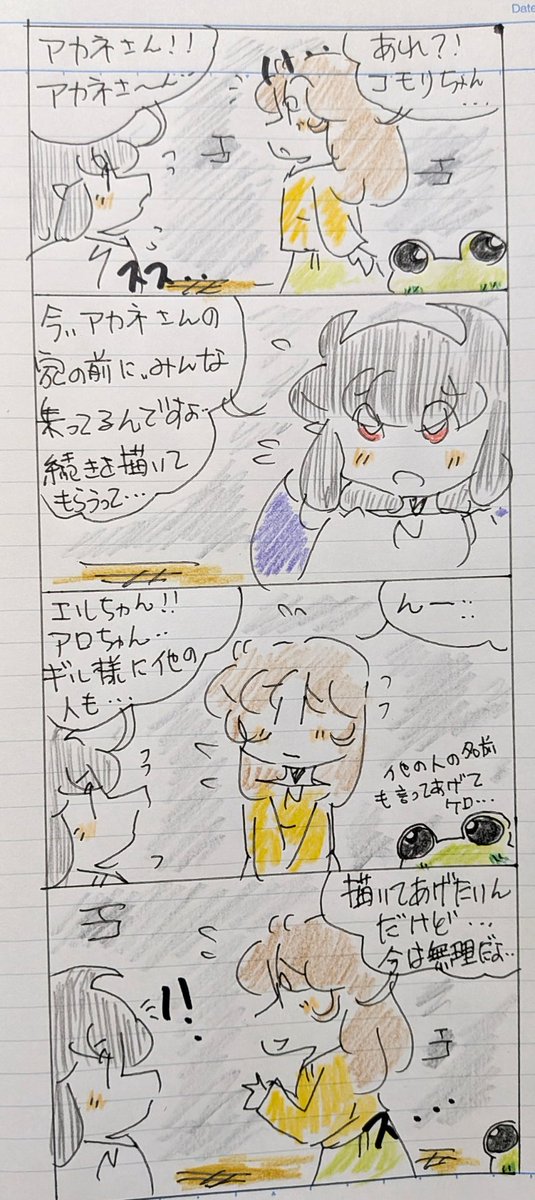 Date
あれ?!
コモリちゃん
...
アカネさん!!
アカネさ〜ん...
スス...
今、アカネさんの
家の前に、みんな
集ってるんですよ...
続きを描いて
もらうって...
んー...
エルちゃん!!
アロちゃん...
ギル様に他の
人も...
他の人の名前
も言ってあげて
ケロ...
描いてあげたいん
だけど...
今は無理だよ...
!!
ス...